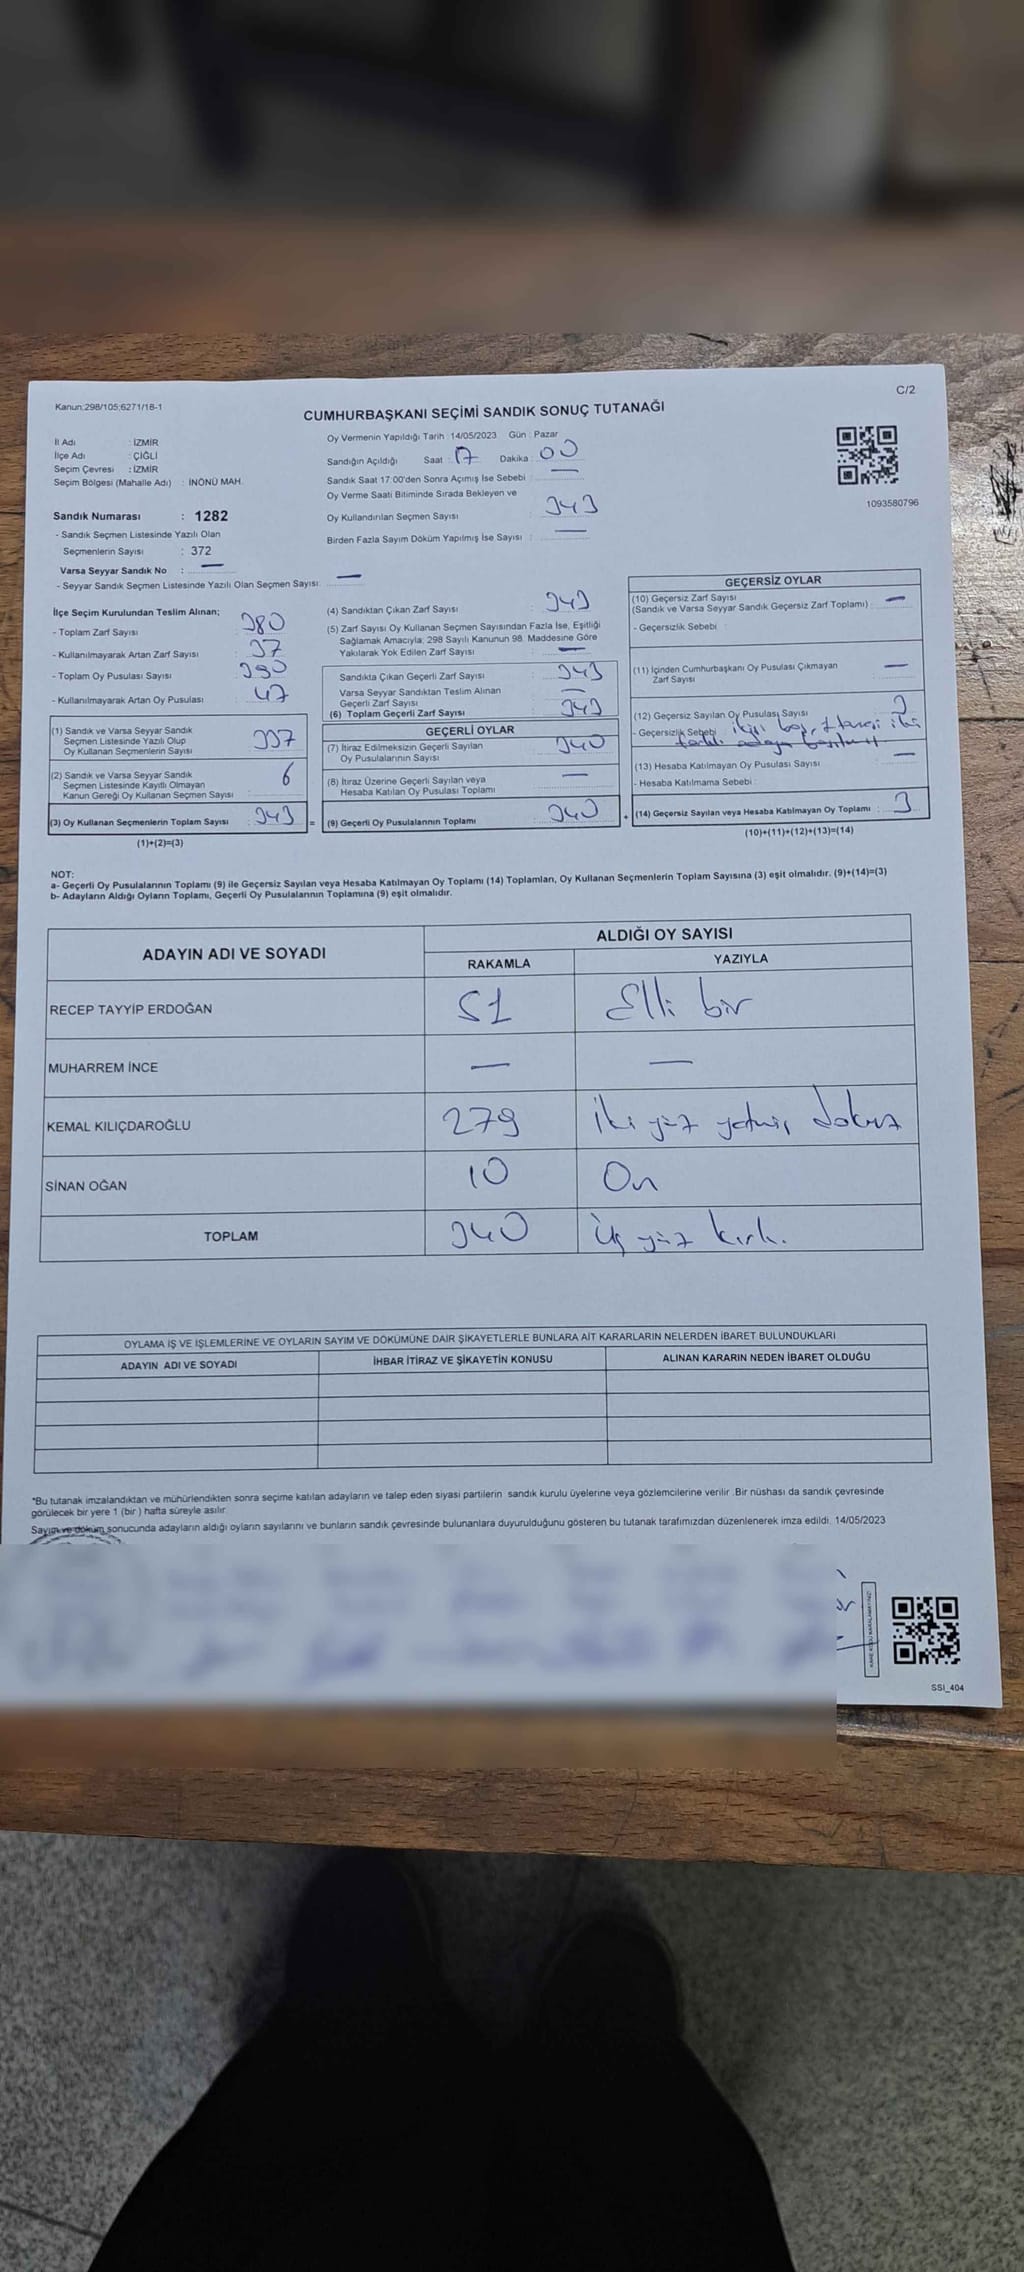 Kanun:298/105;6271/18-1
C/2
CUMHURBAŞKANI SEÇİMİ SANDIK SONUÇ TUTANAĞI
İl Adı : İZMİR
İlçe Adı : ÇİĞLİ
Seçim Çevresi : İZMİR
Seçim Bölgesi (Mahalle Adı) : İNÖNÜ MAH.
Sandık Numarası : 1282
- Sandık Seçmen Listesinde Yazılı Olan
Seçmenlerin Sayısı : 372
Varsa Seyyar Sandık No : —
- Seyyar Sandık Seçmen Listesinde Yazılı Olan Seçmen Sayısı: —
Oy Vermenin Yapıldığı Tarih : 14/05/2023 Gün : Pazar
Sandığın Açıldığı Saat 17 Dakika 00
Sandık Saat 17.00'den Sonra Açımış İse Sebebi : —
Oy Verme Saati Bitiminde Sırada Bekleyen ve
Oy Kullandırılan Seçmen Sayısı : 343
Birden Fazla Sayım Döküm Yapılmış İse Sayısı : —
1093580796
İlçe Seçim Kurulundan Teslim Alınan;
- Toplam Zarf Sayısı : 380
- Kullanılmayarak Artan Zarf Sayısı : 37
- Toplam Oy Pusulası Sayısı : 390
- Kullanılmayarak Artan Oy Pusulası : 47
(1) Sandık ve Varsa Seyyar Sandık
Seçmen Listesinde Yazılı Olup
Oy Kullanan Seçmenlerin Sayısı 337
(2) Sandık ve Varsa Seyyar Sandık
Seçmen Listesinde Kayıtlı Olmayan
Kanun Gereği Oy Kullanan Seçmen Sayısı 6
(3) Oy Kullanan Seçmenlerin Toplam Sayısı : 343 =
(1)+(2)=(3)
(4) Sandıktan Çıkan Zarf Sayısı : 343
(5) Zarf Sayısı Oy Kullanan Seçmen Sayısından Fazla İse, Eşitliği
Sağlamak Amacıyla; 298 Sayılı Kanunun 98. Maddesine Göre
Yakılarak Yok Edilen Zarf Sayısı : —
Sandıkta Çıkan Geçerli Zarf Sayısı : 343
Varsa Seyyar Sandıktan Teslim Alınan
Geçerli Zarf Sayısı : —
(6) Toplam Geçerli Zarf Sayısı : 343
GEÇERLİ OYLAR
(7) İtiraz Edilmeksizin Geçerli Sayılan
Oy Pusulalarının Sayısı : 340
(8) İtiraz Üzerine Geçerli Sayılan veya
Hesaba Katılan Oy Pusulası Toplamı : —
(9) Geçerli Oy Pusulalarının Toplamı : 340 +
GEÇERSİZ OYLAR
(10) Geçersiz Zarf Sayısı
(Sandık ve Varsa Seyyar Sandık Geçersiz Zarf Toplamı) : —
- Geçersizlik Sebebi :
(11) İçinden Cumhurbaşkanı Oy Pusulası Çıkmayan
Zarf Sayısı : —
(12) Geçersiz Sayılan Oy Pusulası Sayısı : 3
- Geçersizlik Sebebi ikisi boş, 1 tanesi iki
farklı adaya basılmış
(13) Hesaba Katılmayan Oy Pusulası Sayısı : —
- Hesaba Katılmama Sebebi :
(14) Geçersiz Sayılan veya Hesaba Katılmayan Oy Toplamı : 3
(10)+(11)+(12)+(13)=(14)
NOT:
a- Geçerli Oy Pusulalarının Toplamı (9) ile Geçersiz Sayılan veya Hesaba Katılmayan Oy Toplamı (14) Toplamları, Oy Kullanan Seçmenlerin Toplam Sayısına (3) eşit olmalıdır. (9)+(14)=(3)
b- Adayların Aldığı Oyların Toplamı, Geçerli Oy Pusulalarının Toplamına (9) eşit olmalıdır.
ADAYIN ADI VE SOYADI ALDIĞI OY SAYISI
RAKAMLA YAZIYLA
RECEP TAYYİP ERDOĞAN 51 Elli bir
MUHARREM İNCE — —
KEMAL KILIÇDAROĞLU 279 İki yüz yetmiş dokuz
SİNAN OĞAN 10 On
TOPLAM 340 Üç yüz kırk.
OYLAMA İŞ VE İŞLEMLERİNE VE OYLARIN SAYIM VE DÖKÜMÜNE DAİR ŞİKAYETLERLE BUNLARA AİT KARARLARIN NELERDEN İBARET BULUNDUKLARI
ADAYIN ADI VE SOYADI İHBAR İTİRAZ VE ŞİKAYETİN KONUSU ALINAN KARARIN NEDEN İBARET OLDUĞU
*Bu tutanak imzalandıktan ve mühürlendikten sonra seçime katılan adayların ve talep eden siyasi partilerin sandık kurulu üyelerine veya gözlemcilerine verilir. Bir nüshası da sandık çevresinde
görülecek bir yere 1 (bir) hafta süreyle asılır.
Sayım ve döküm sonucunda adayların aldığı oyların sayılarını ve bunların sandık çevresinde bulunanlara duyurulduğunu gösteren bu tutanak tarafımızdan düzenlenerek imza edildi. 14/05/2023
SSI_404